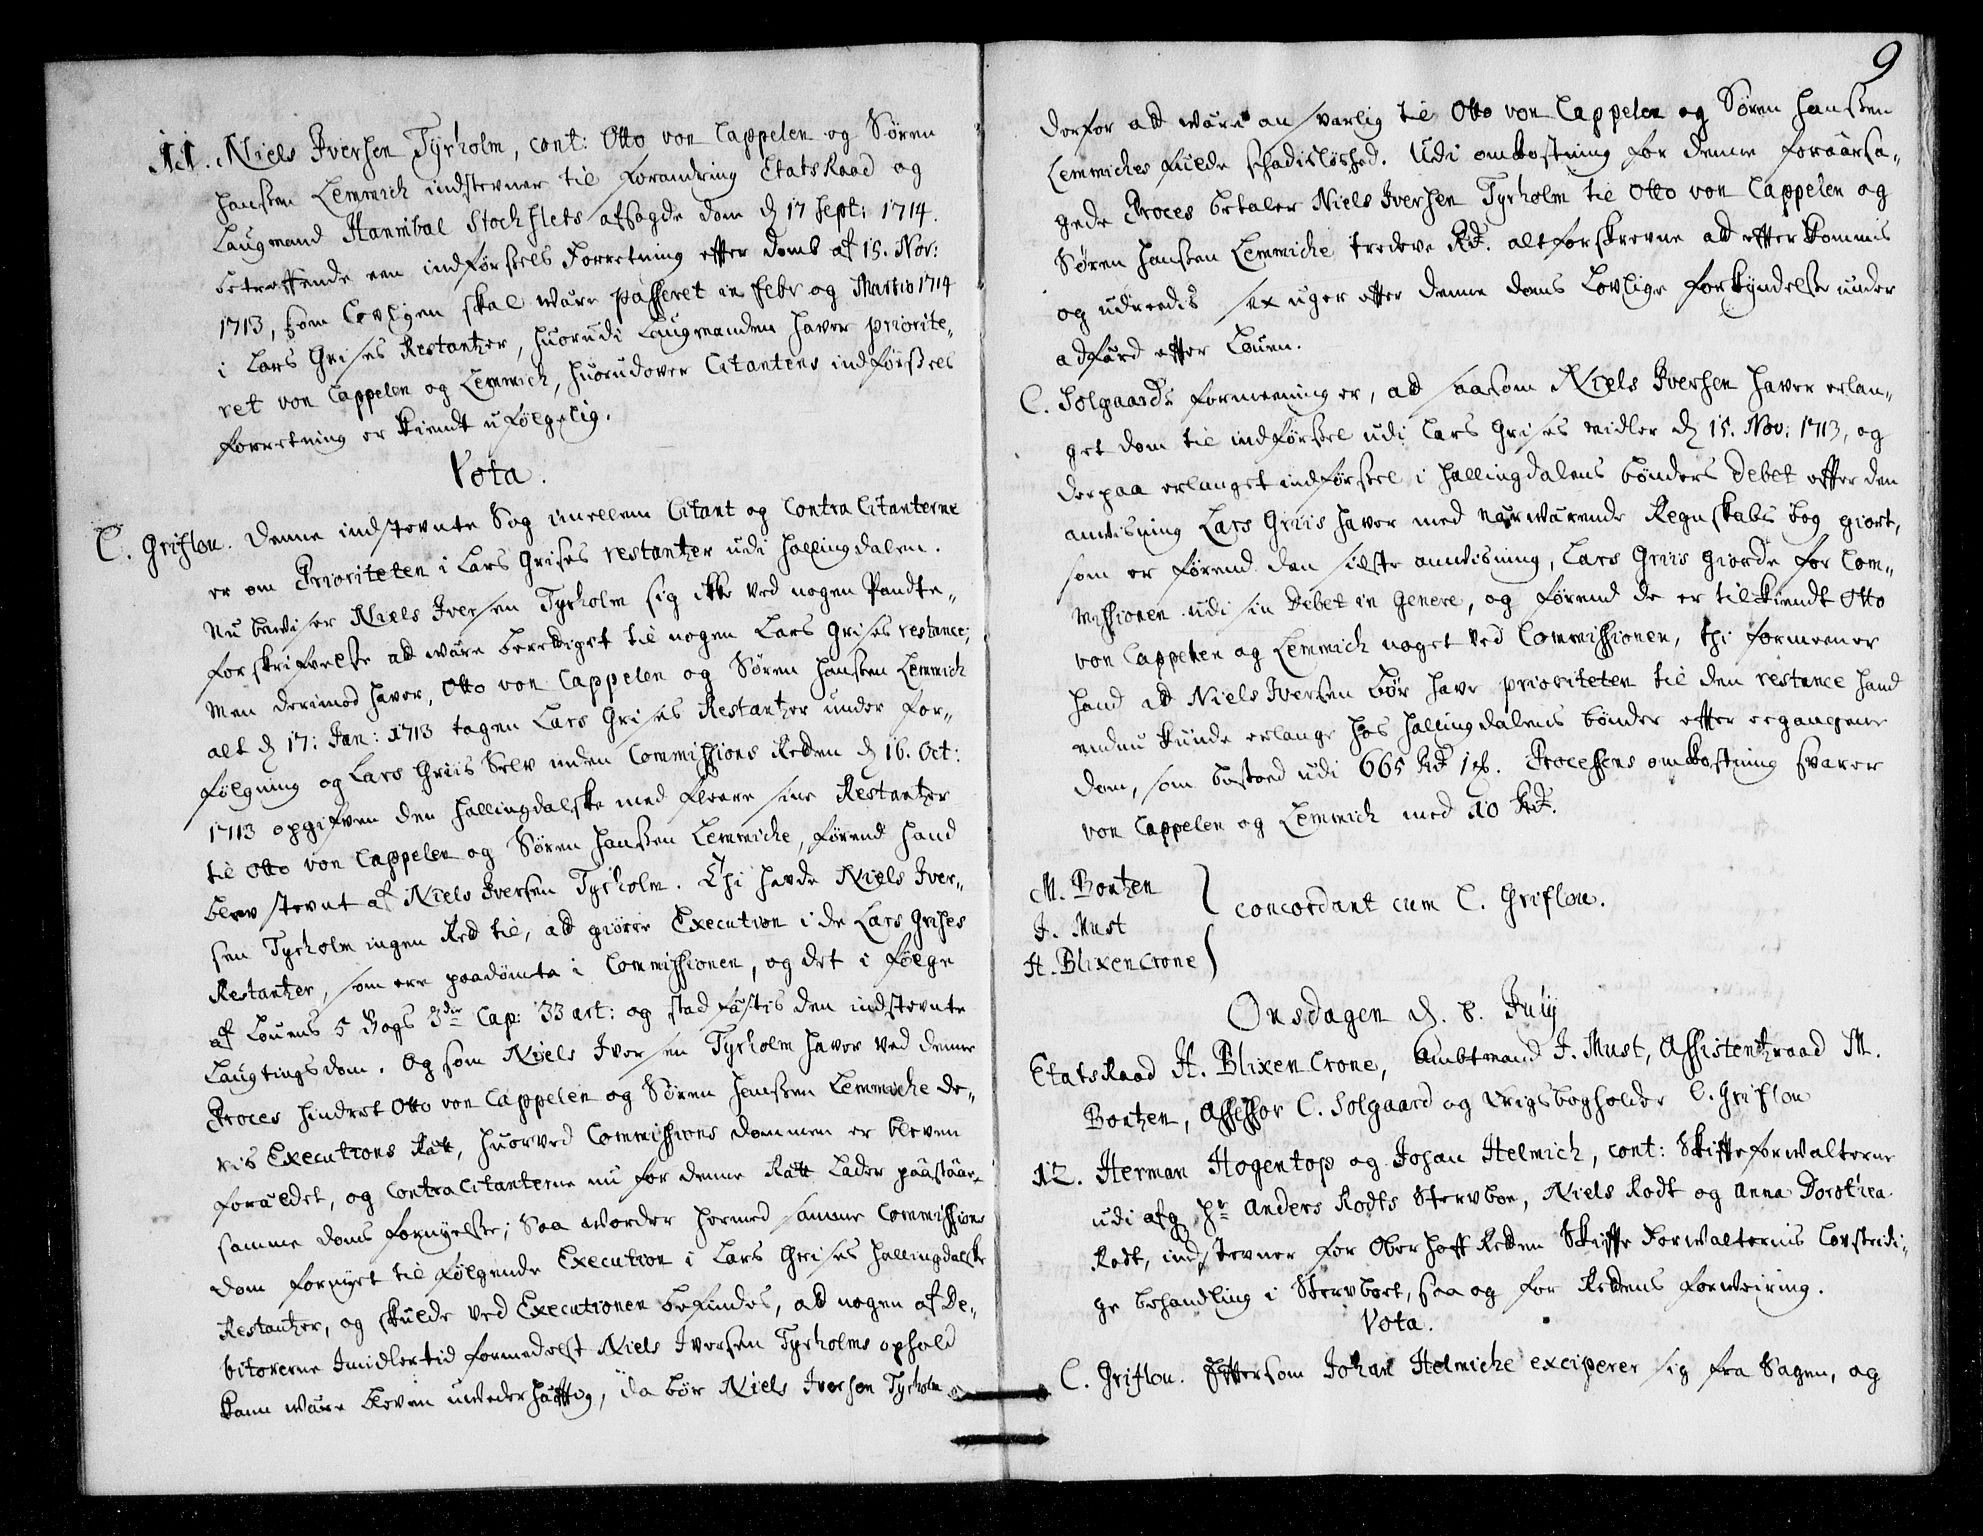 11. Niels Iversen Tyrholm, cont: Otto von Cappelen og Søren
Hanßen Lemmich indstevner til forandring Etats Raad og
Laugmand Hannibal Stochflets afsagde dom d 17 Sept: 1714.
betreffende een indførßels Forretning effter domb af 15. Nov:
1713, som lovligen skal være passeret in Febr og Martio 1714
i Lars Grises Restantzer, huorudi Laugmanden haver priorite„
ret von Cappelen og Lemmich, huorudover Citantens indførßels
forretning er kiendt u følgelig.
Vota.
C. Griflou. Denne indstevnte Sag imellem Citant og Contra Citanterne
er om Prioriteten i Lars Grises restantzer udi Hallingdalen.
Nu beviser Niels Iversen Tyrholm sig ikke ved nogen Pandte„
forskrifvelse at være berettiget til nogen Lars Grises restance;
Men derimod haver, Otto von Cappelen og Søren Hanßen Lemmich
alt d 17: Jan: 1713 tagen Lars Grises Restantzer under for„
følgning og Lars Griis Selv inden Commissions Retten d 16. Oct:
1713 opgifven den Hallingdalske med fleere sine Restantzer
til Otto von Cappelen og Søren Hanßen Lemmiche, førend hand
blev stevnt af Niels Iversen Tyrholm. Thi havde Niels Iver„
sen Tyrholm ingen Ret til, at giøre Execution i de Lars Grises
Restantzer, som ere paadømte i Commissionen, og det i følge
af Louens 5 Bogs 3die Cap: 33 art: og stadfæstis den indstevnte
Laugtings dom. Og som Niels Iversen Tyrholm haver ved denne
Proces hindret Otto von Cappelen og Søren Hanßen Lemmiche de„
ris Executions Rætt, huorved Commissions dommen er bleven
forældet, og ContraCitanterne nu for denne Rætt lader paastaae
samme doms fornyelse; Saa vorder hermed samme Commissions
dom fornyet til følgende Execution i Lars Grises Hallingdalske
Restantzer, og skulde ved Executionen befindes, at nogen af De„
bitorerne Imidlertid formedelst Niels Iversen Tyrholms ophold
kann være bleven uvederhæfftig, da bør Niels Iversen Tyrholm
9
derfor at være ansvarlig til Otto von Cappelen og Søren Hanßen
Lemmiches fulde skadisløshed. Udi omkostning for denne foraarsa„
gede Proces betaler Niels Iversen Tyrholm til Otto von Cappelen og
Søren Hanßen Lemmiche tredeve Rdr. alt forskrevne at efterkommis
og udreedis sex uger efter denne doms Lovlige forkyndelse under
adfærd effter Louen.
C. Solgaards formeening er, at saasom Niels Iversen haver erlan„
get dom til indførßel udi Lars Grises midler d 15. Nov: 1713, og
derpaa erlanget indførßel i Hallingdalens bønders debet effter den
anvisning Lars Griis haver med nærværende Regnskabs bog giort,
som er førend den sidste anvisning, Lars Griis giorde for Com„
missionen udi sin Debet in Genere, og førend de er tilkiendt Otto
von Cappelen og Lemmich noget ved Commissionen, thi formeener
hand at Niels Iversen bør have prioriteten til den restance hand
endnu kunde erlange hos Hallingdalens bønder effter ergangene
dom, som bestoed udi 665 Rdr 1 ß. Processens omkostning svarer
von Cappelen og Lemmich med 10 Rdr.
M. Bentzen
J. Must
H. Blixencrone
concordant cum C. Griflou.
Onsdagen d. 8. July
Etats Raad H. Blixen Crone, Ambtmand J. Must, Assistentzraad M.
Bentzen, Assessor C. Solgaard og Krigsbogholder C. Griflou
12. Herman Hogentop og Johan Helmich, cont: Skifteforwalterne
udi afg. Hr Anders Rodts Stervboe, Niels Rodt og Anna Dorothea
Rodt, indstevner for OberHoff Retten Skiffte Forwalternis lovstridi„
ge behandling i Stervboet, saa og for Rettens forveiring.
Vota.
C. Griflou. Effterdom Johan Helmiche exciperer sig fra Sagen, og